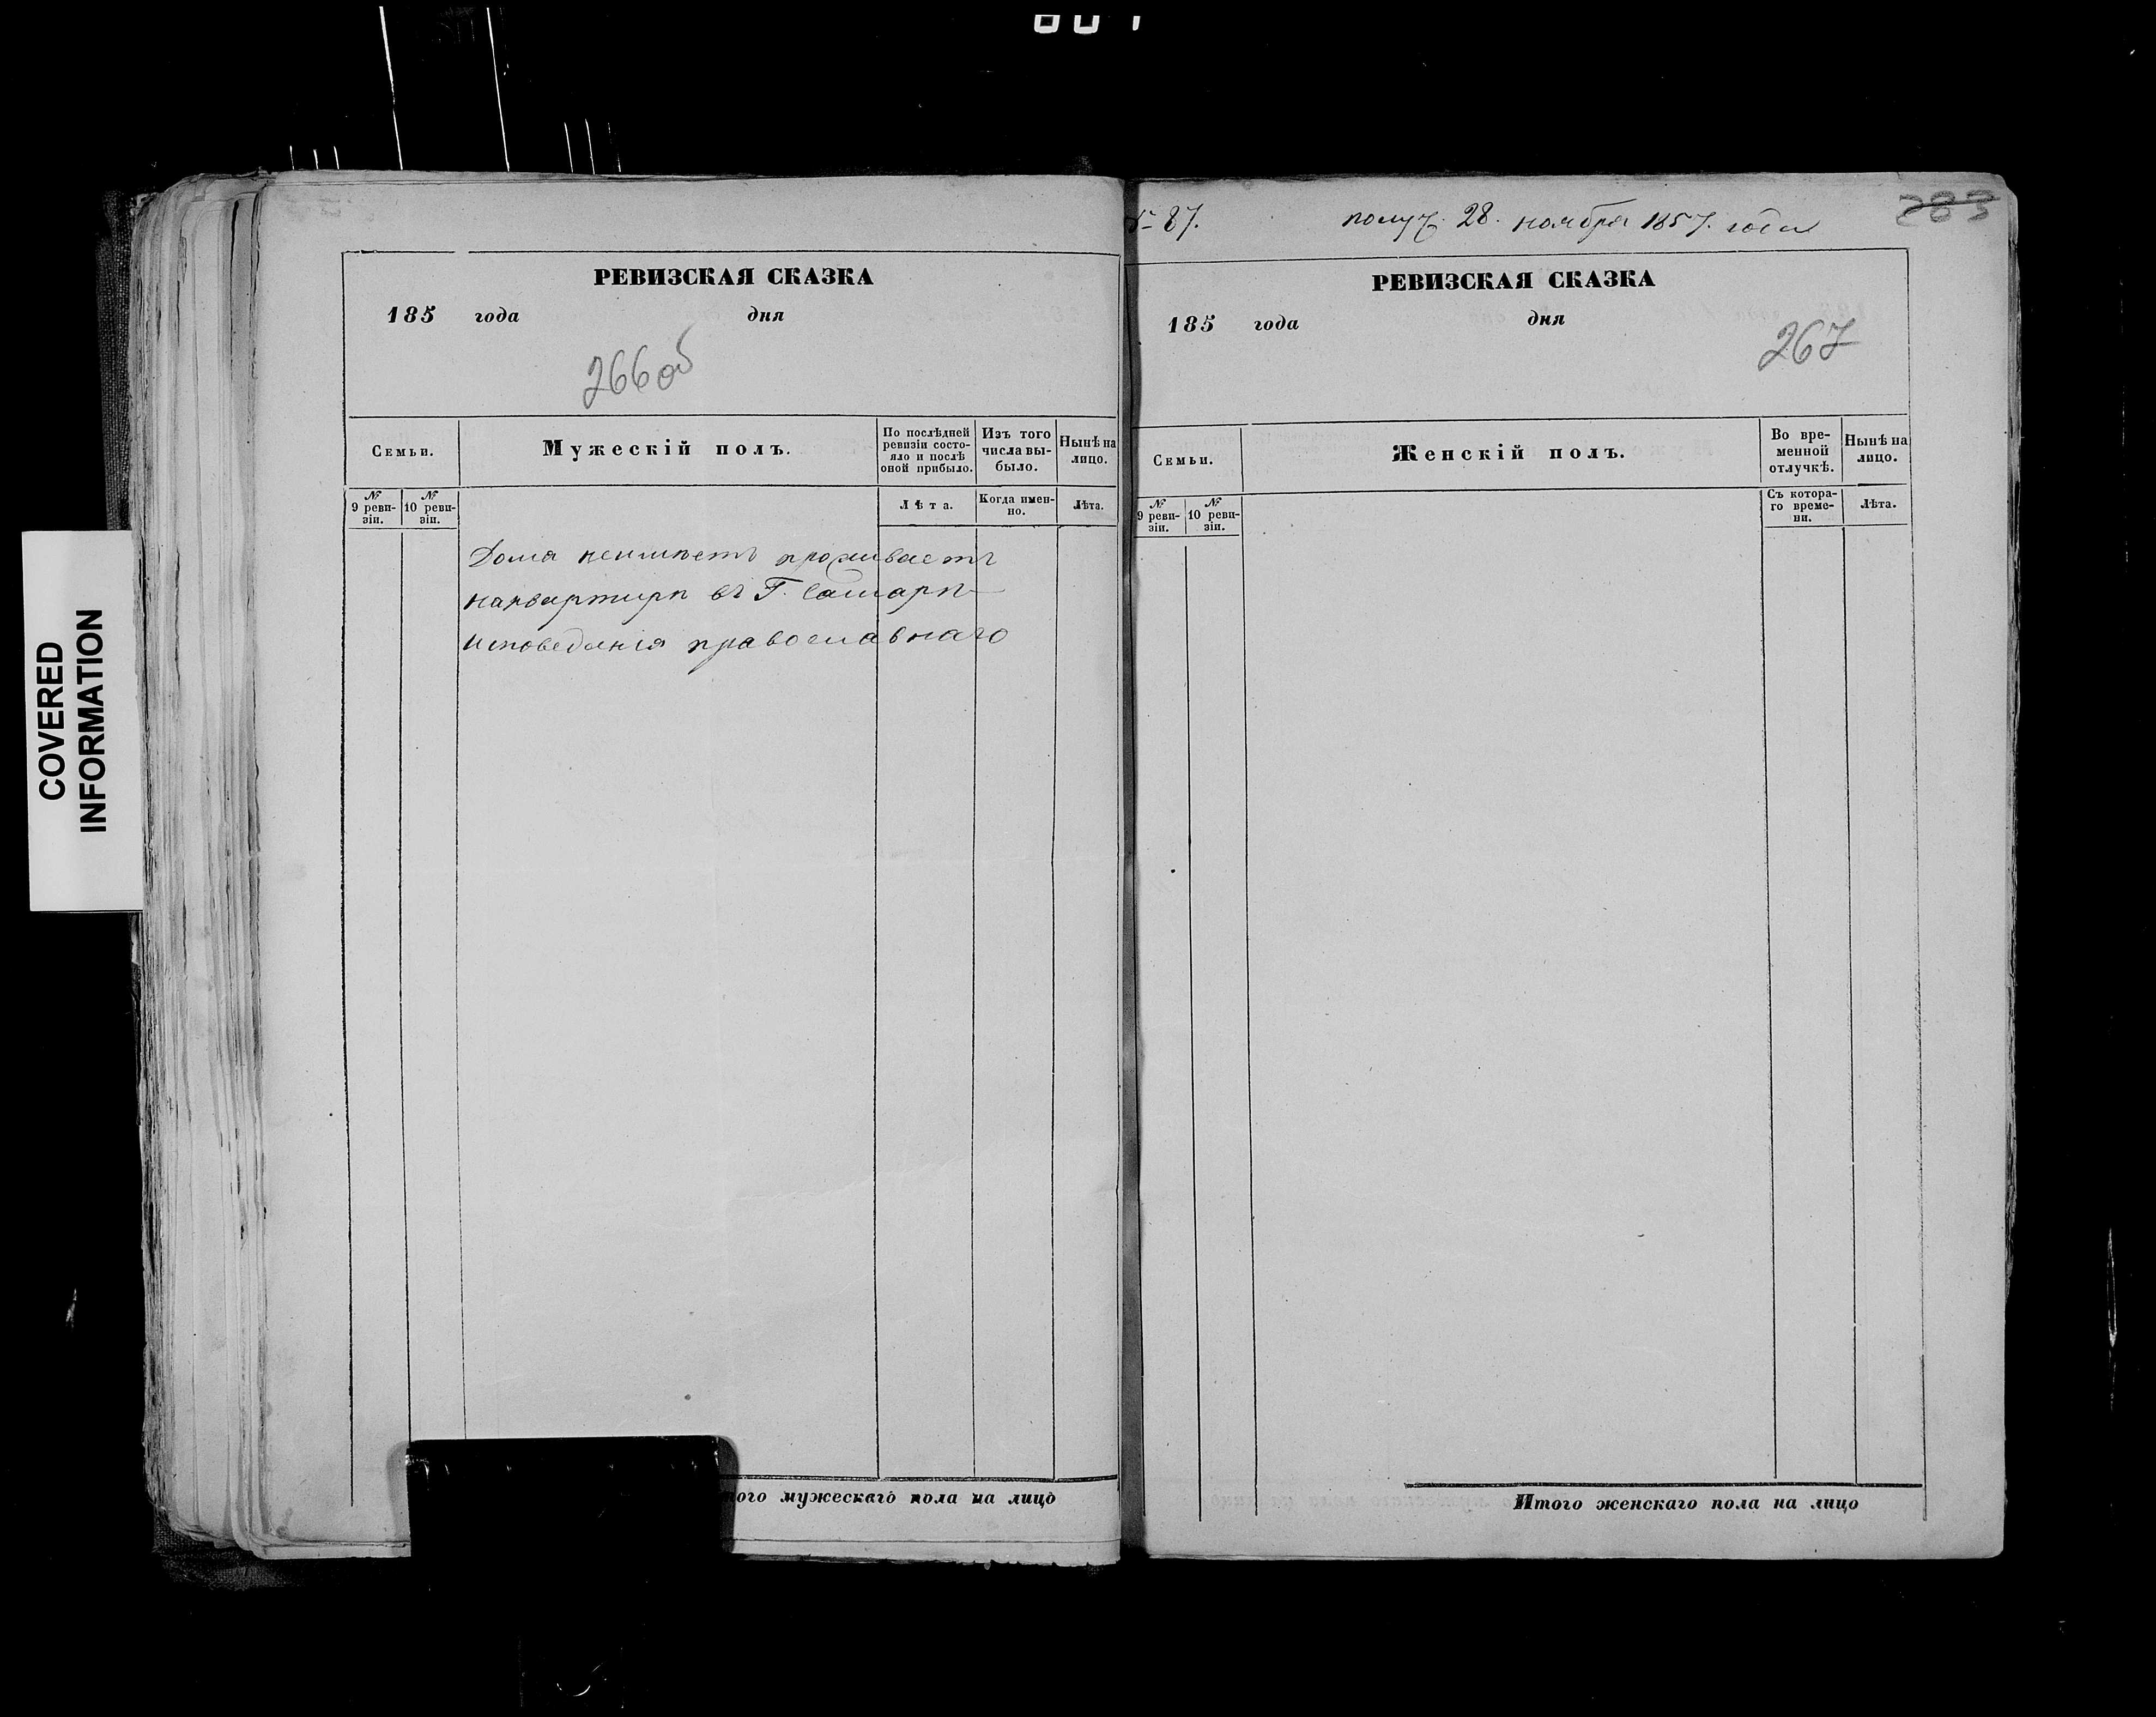 РЕВИЗСКАЯ СКАЗКА
185 года дня
266об
Семьи.
Мужескій полъ.
По послѣдней ревизіи состо-
яло и послѣ оной прибыло.
Изъ того числа вы-
было.
Нынѣ на лицо.
№ 9 реви-
зіи.
№ 10 реви-
зіи.
Лѣта.
Когда имен-
но.
Лѣта.
Дома неимѣетъ проживаетъ
наквартирѣ въ Г. Самарѣ
исповеданія православнаго
ого мужескаго пола на лицо
COVERED
INFORMATION
87.
получ. 28. ноября 1857. года
283
РЕВИЗСКАЯ СКАЗКА
185 года дня
267
Семьи.
Женскій полъ.
Во вре-
менной
отлучкѣ.
Нынѣ на
лицо.
№ 9 реви-
зіи.
№ 10 реви-
зіи.
Съ котора-
го време-
ни.
Лѣта.
Итого женскаго пола на лицо